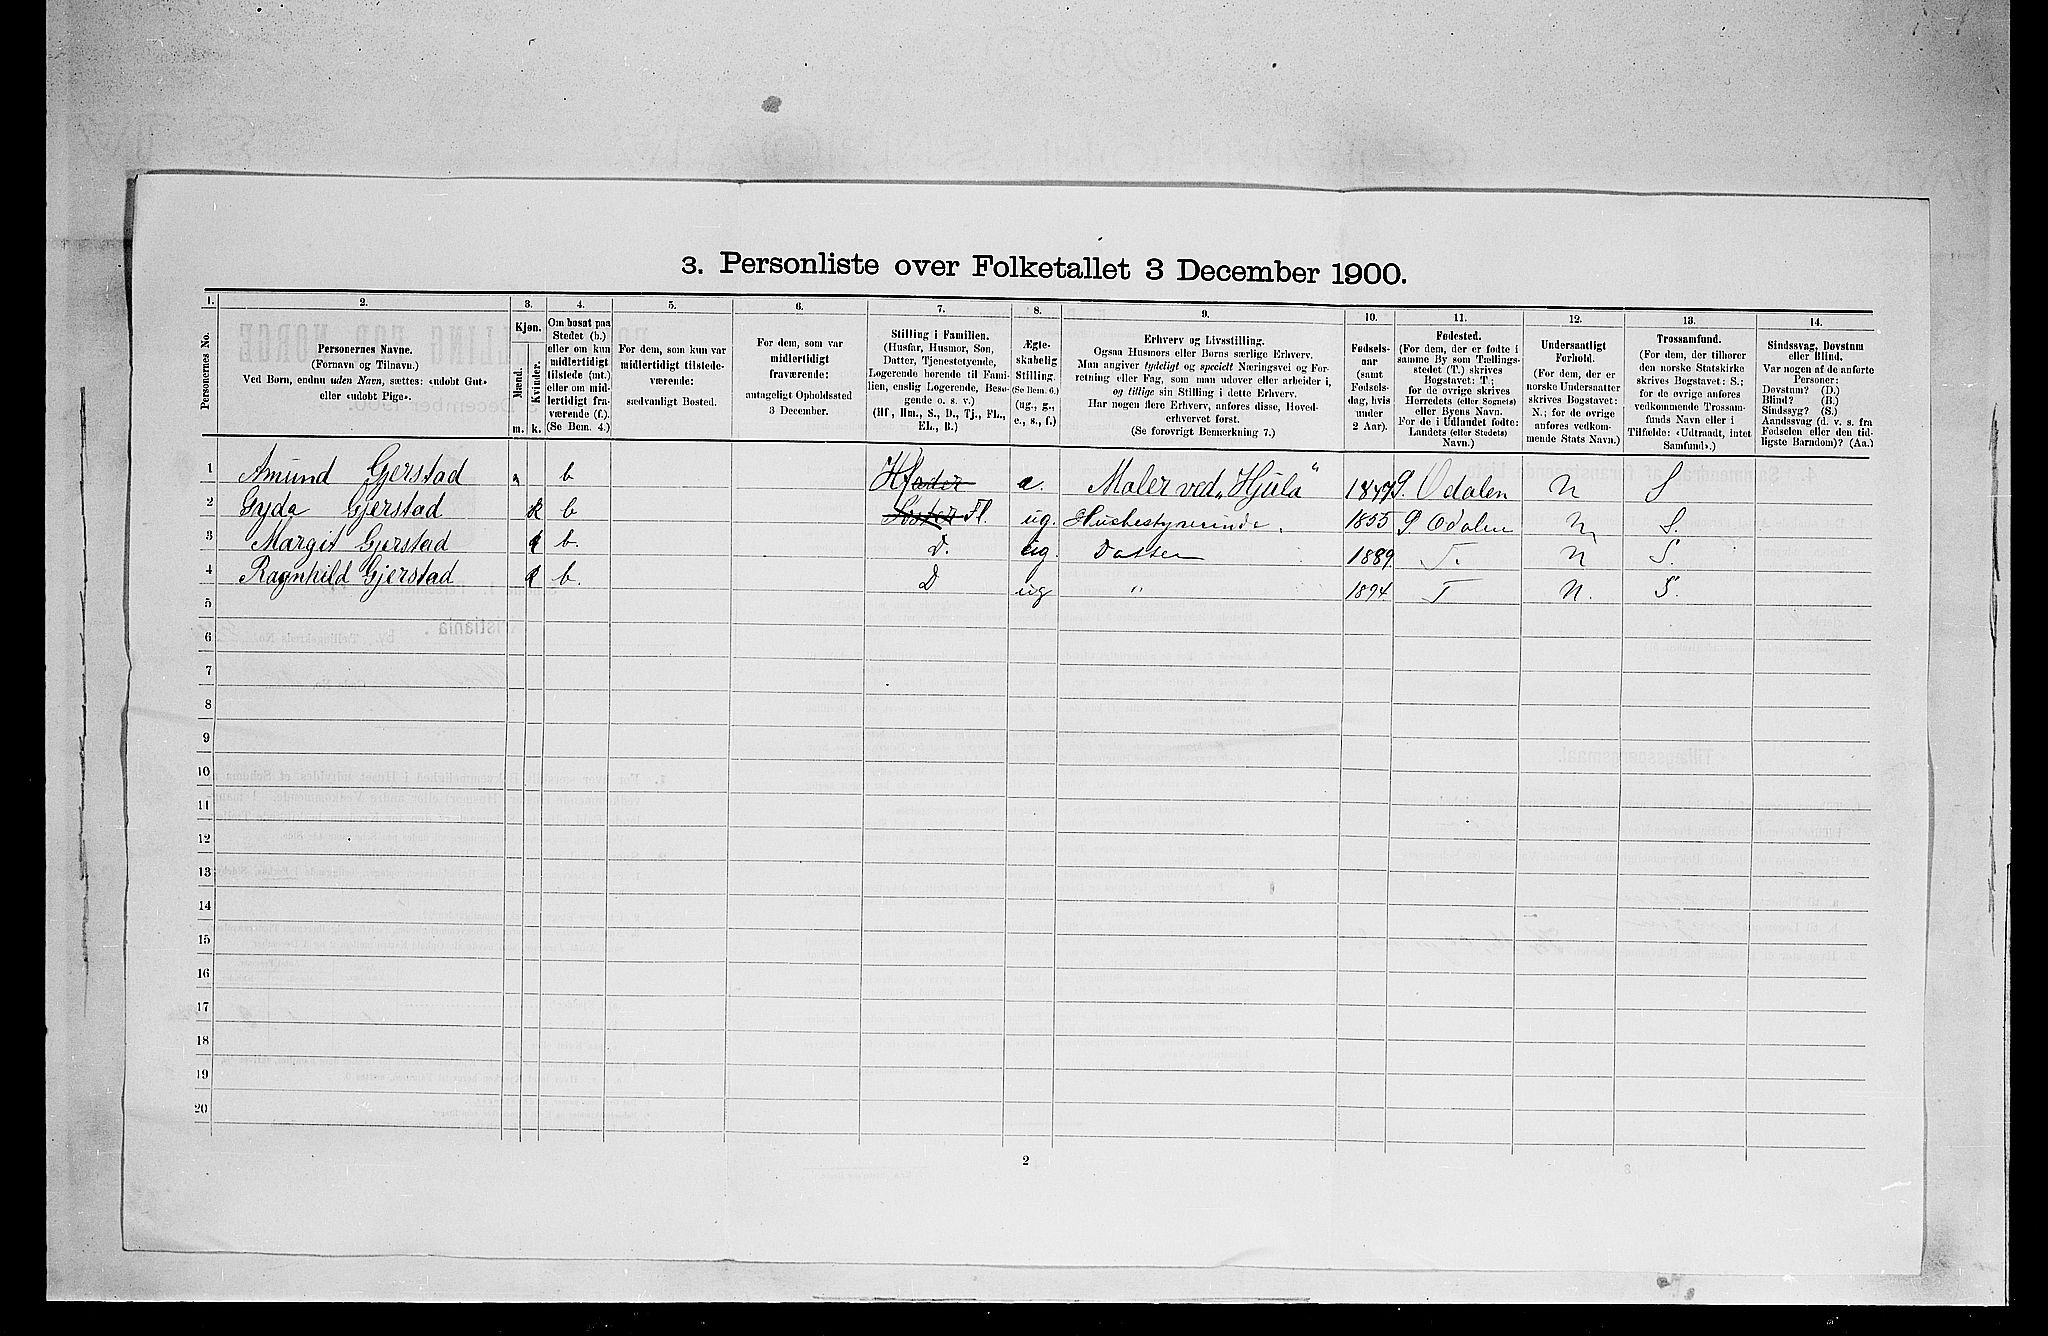 3. Personliste over Folketallet 3 December 1900.
1. 2. 3. 4. 5. 6. 7. 8. 9. 10. 11. 12. 13. 14.
Personernes No.
Personernes Navne.
(Fornavn og Tilnavn.)
Ved Børn, endnu uden Navn, sættes: «udøbt Gut»
eller «udøbt Pige».
Kjøn.
Mænd.
Kvinder.
m. k.
Om bosat paa
Stedet (b.)
eller om kun
midlertidigt
tilstede (mt.)
eller om mid-
lertidigt fra-
værende (f.).
(Se Bem. 4.)
For dem, som kun var
midlertidigt tilstede-
værende:
sædvanligt Bosted.
For dem, som var
midlertidigt
fraværende:
antageligt Opholdssted
3 December.
Stilling i Familien.
(Husfar, Husmor, Søn,
Datter, Tjenestetyende,
Logerende hørende til Fami-
lien, enslig Logerende, Besø-
gende o. s. v.)
(Hf., Hm., S., D., Tj., FL.,
EL., B.)
Ægte-
skabelig
Stilling.
(Se Bem. 6.)
(ug., g.,
e., s., f.)
Erhverv og Livsstilling.
Ogsaa Husmors eller Børns særlige Erhverv.
Man angiver tydeligt og specielt Næringsvei og For-
retning eller Fag, som man udøver eller arbeider i,
og tillige sin Stilling i dette Erhverv.
Har nogen flere Erhverv, anføres disse, Hoved-
erhvervet først.
(Se forøvrigt Bemerkning 7.)
Fødsels-
aar
(samt
Fødsels-
dag, hvis
under
2 Aar).
Fødested.
(For dem, der er fødte i
samme By som Tællings-
stedet (T.) skrives
Bogstavet: T.;
for de øvrige skrives
Herredets (eller Sognets)
eller Byens Navn.
For de i Udlandet fødte:
Landets (eller Stedets)
Navn.)
Undersaatligt
Forhold.
(For dem, der er
norske Undersaatter
skrives Bogstavet:
N.; for de øvrige
anføres vedkom-
mende Stats Navn.)
Trossamfund.
(For dem, der tilhører
den norske Statskirke
skrives Bogstavet: S.;
for de øvrige anføres
vedkommende Trossam-
funds Navn eller i
Tilfælde: «Udtraadt, intet
Samfund».)
Sindssvag, Døvstum
eller Blind.
Var nogen af de anførte
Personer:
Døvstum? (D.)
Blind? (B.)
Sindssyg? (S.)
Aandssvag (d. v. s. fra
Fødselen eller den tid-
ligste Barndom)? (Aa.)
1 Amund Gjerstad b Hfader e. Maler ved „Hjula“ 1847 S. Odalen N S
2 Gyda Gjerstad k b Søster Fl. ug. Husbestyrerinde. 1855 S Odalen N. S.
3 Margit Gjerstad k b. D. ug. Datter 1889 T. N S.
4 Ragnhild Gjerstad k b. D ug " 1894 T N. S.
5
6
7
8
9
10
11
12
13
14
15
16
17
18
19
20
2